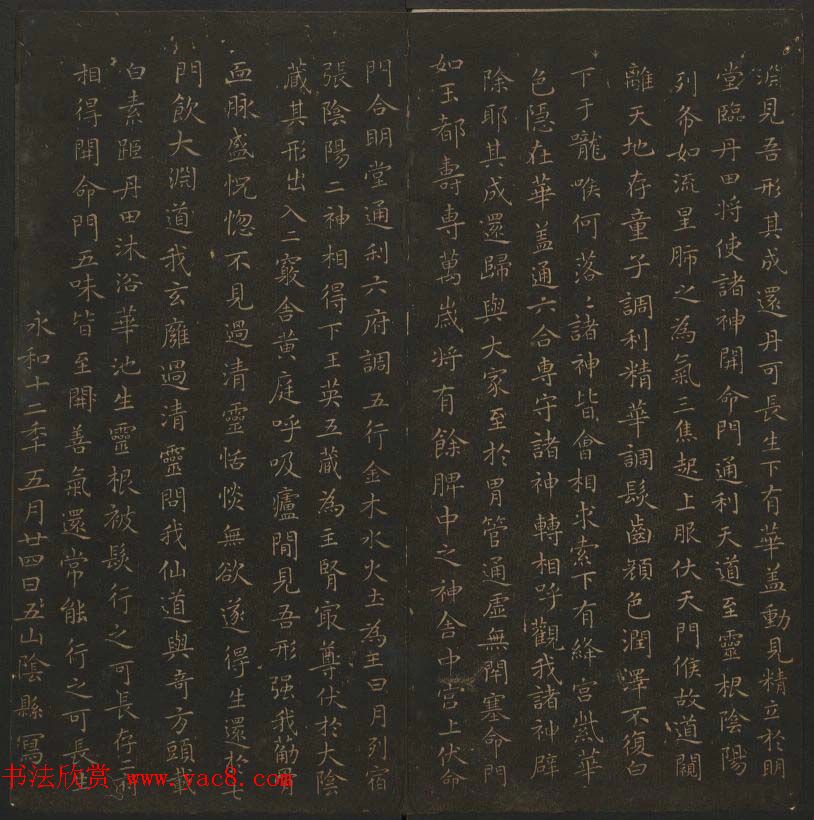 淵見吾形其成還丹可長生下有華盖動見精立於明
堂臨丹田將使諸神開命門通利天道至靈根陰陽
列布如流星肺之為氣三焦起上服伏天門候故道闚
離天地存童子調利精華調髮齒顏色潤澤不復白
下于嚨喉何落〻諸神皆會相求索下有絳宮紫華
色隱在華盖通六合專守諸神轉相呼觀我諸神辟
除耶其成還歸與大家至於胃管通虛無閉塞命門
如玉都壽專萬歲將有餘脾中之神舍中宮上伏命
門合明堂通利六府調五行金木水火土為主日月列宿
張陰陽二神相得下玉英五藏為主腎㝡尊伏於大陰
藏其形出入二竅舍黃庭呼吸廬間見吾形强我筋骨
血脉盛恍惚不見過清靈恬惔無欲遂得生還於七
門飲大淵道我玄廱過清靈問我仙道與奇方頭載
白素距丹田沐浴華池生靈根被髮行之可長存二府
相得開命門五味皆至開善氣還常能行之可長生
永和十二年五月廿四日五山陰縣寫
书法欣赏 www.yac8.com